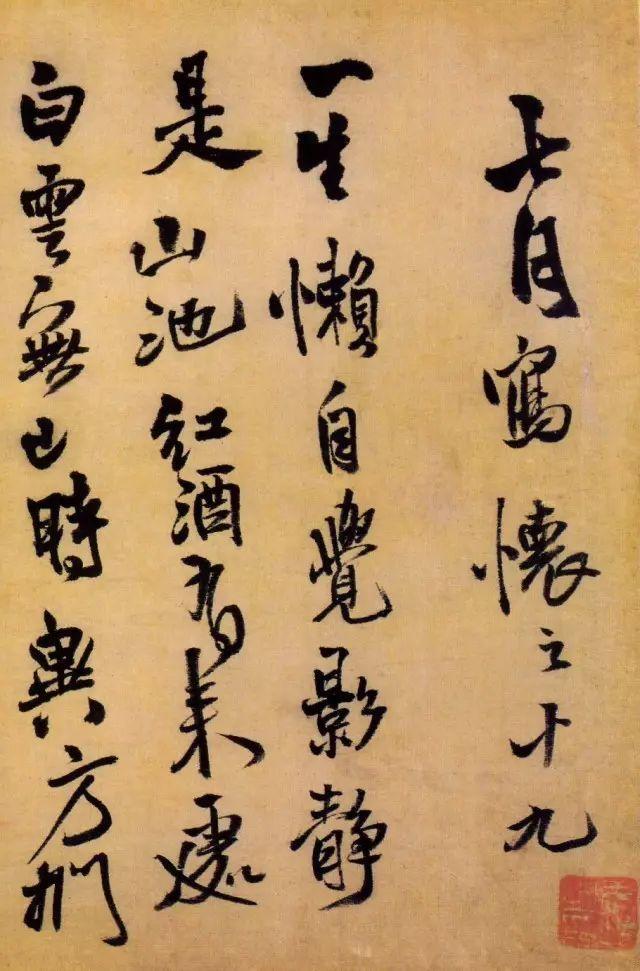 七月寫懷之十九
一生懶自覺影靜
是山池紅酒有來處
白雲無已時方捫